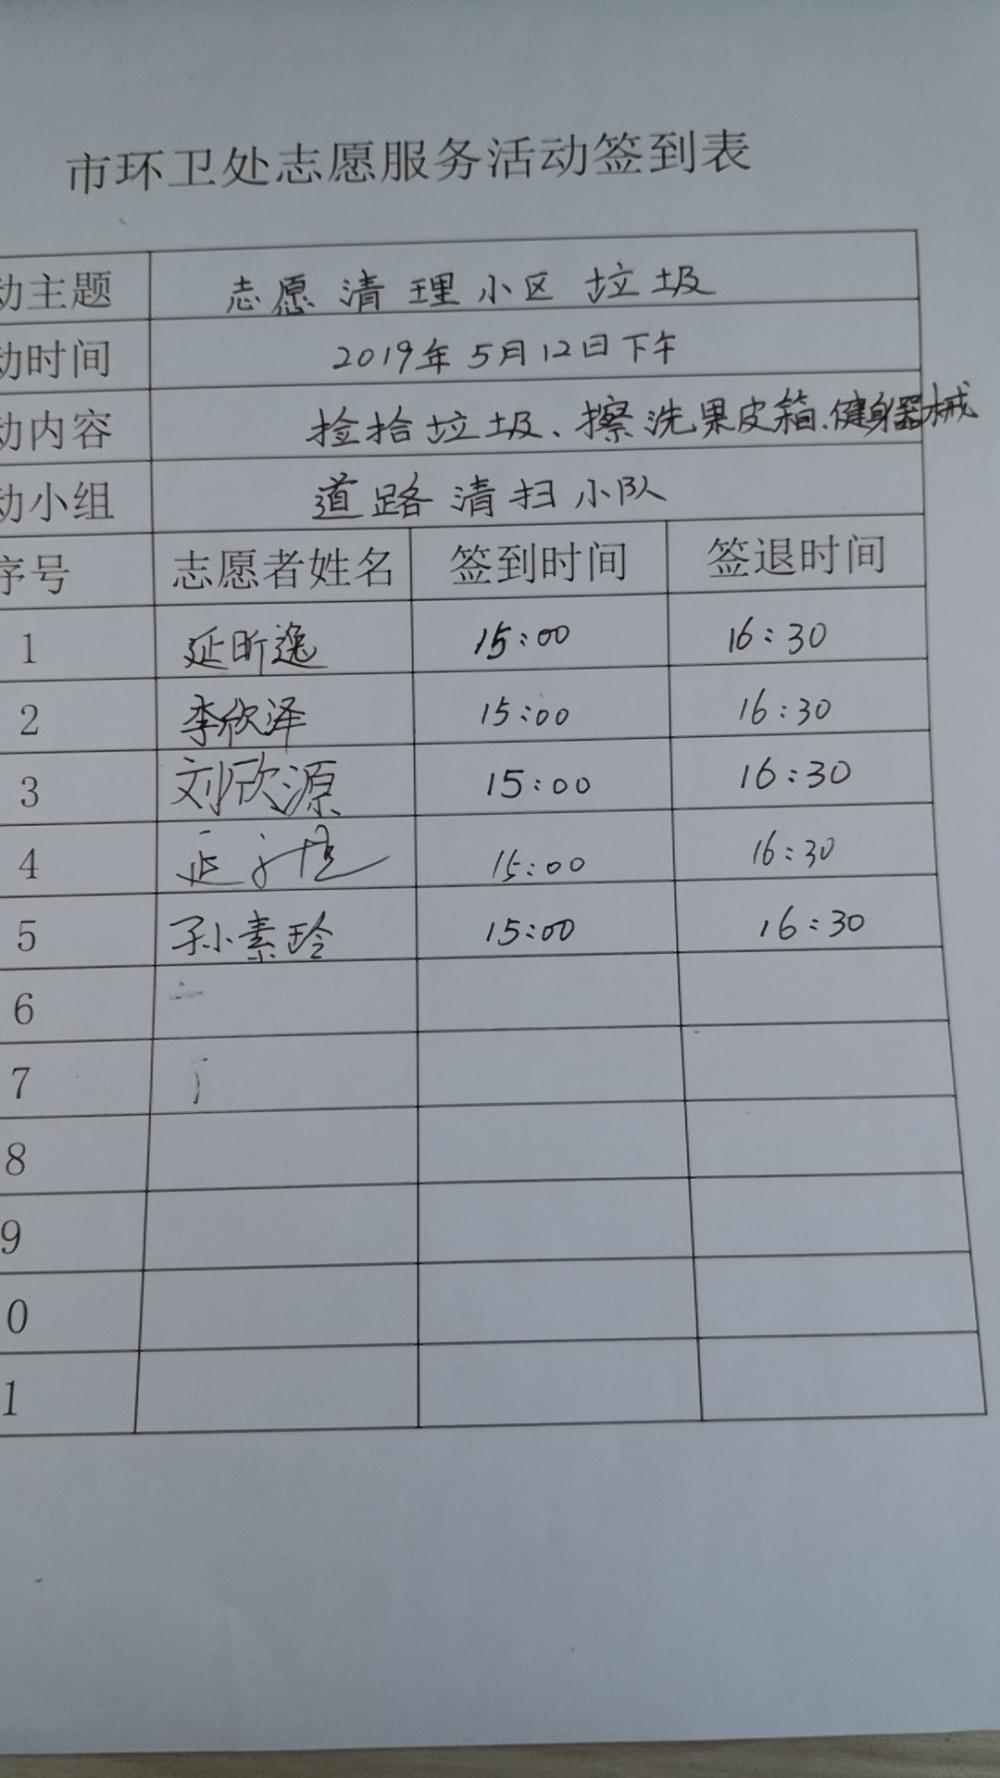 市环卫处志愿服务活动签到表
动主题 志愿清理小区垃圾
动时间 2019年5月12日下午
动内容 捡拾垃圾、擦洗果皮箱、健身器械
动小组 道路清扫小队
序号 志愿者姓名 签到时间 签退时间
1 延昕逸 15:00 16:30
2 李欣泽 15:00 16:30
3 刘欣源 15:00 16:30
4 15:00 16:30
5 孙素玲 15:00 16:30
6
7
8
9
0
1